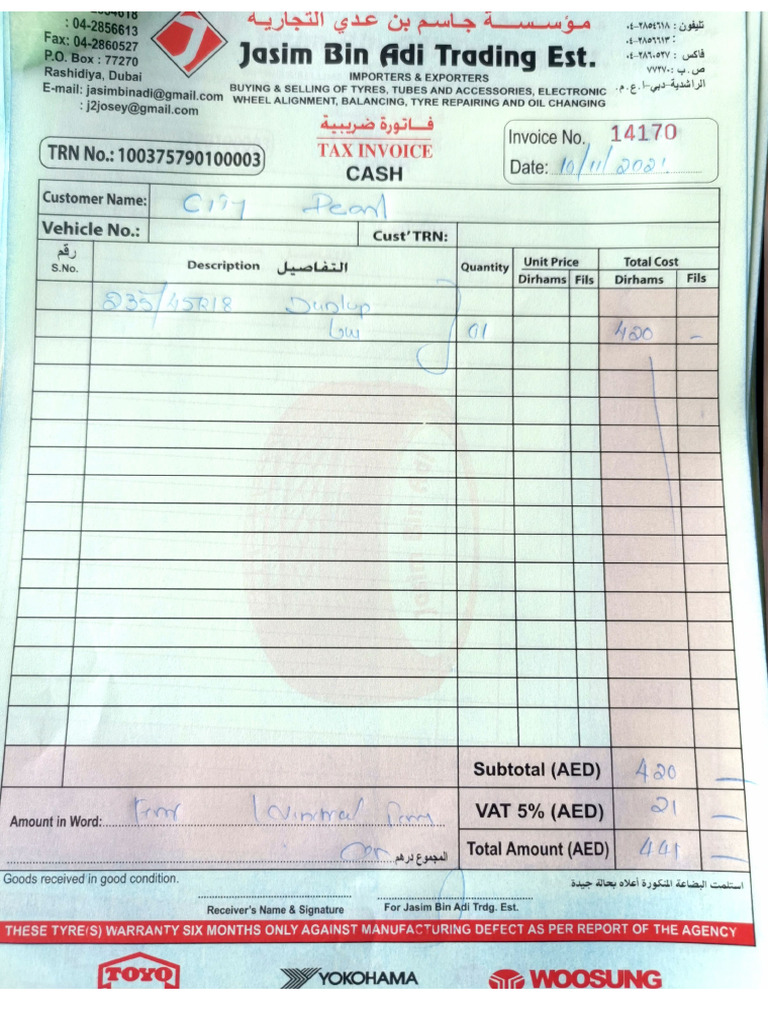 : 04-2854618
: 04-2856613
Fax: 04-2860527
P.O. Box : 77270
Rashidiya, Dubai
E-mail: jasimbinadi@gmail.com
: j2josey@gmail.com
مؤسسة جاسم بن عدي التجارية
Jasim Bin Adi Trading Est.
IMPORTERS & EXPORTERS
BUYING & SELLING OF TYRES, TUBES AND ACCESSORIES, ELECTRONIC
WHEEL ALIGNMENT, BALANCING, TYRE REPAIRING AND OIL CHANGING
تليفون : ٠٤-٢٨٥٤٦١٨
: ٠٤-٢٨٥٦٦١٣
فاكس : ٠٤-٢٨٦٠٥٢٧
ص.ب : ٧٧٢٧٠
الراشدية-دبي-ا.ع.م.
TRN No.: 100375790100003
فاتورة ضريبية
TAX INVOICE
CASH
Invoice No. 14170
Date: 10/11/2021
Customer Name: City Pearl
Vehicle No.: Cust' TRN:
رقم
S.No. Description التفاصيل Quantity Unit Price Total Cost
Dirhams Fils Dirhams Fils
235/45R18 Dunlop
01 420 -
Jasim Bin Adi
Subtotal (AED) 420 -
Amount in Word: Four Hundred Forty VAT 5% (AED) 21 -
One المجموع درهم Total Amount (AED) 441 -
Goods received in good condition. استلمت البضاعة المذكورة أعلاه بحالة جيدة
Receiver's Name & Signature For Jasim Bin Adi Trdg. Est.
THESE TYRE(S) WARRANTY SIX MONTHS ONLY AGAINST MANUFACTURING DEFECT AS PER REPORT OF THE AGENCY
TOYO YOKOHAMA WOOSUNG